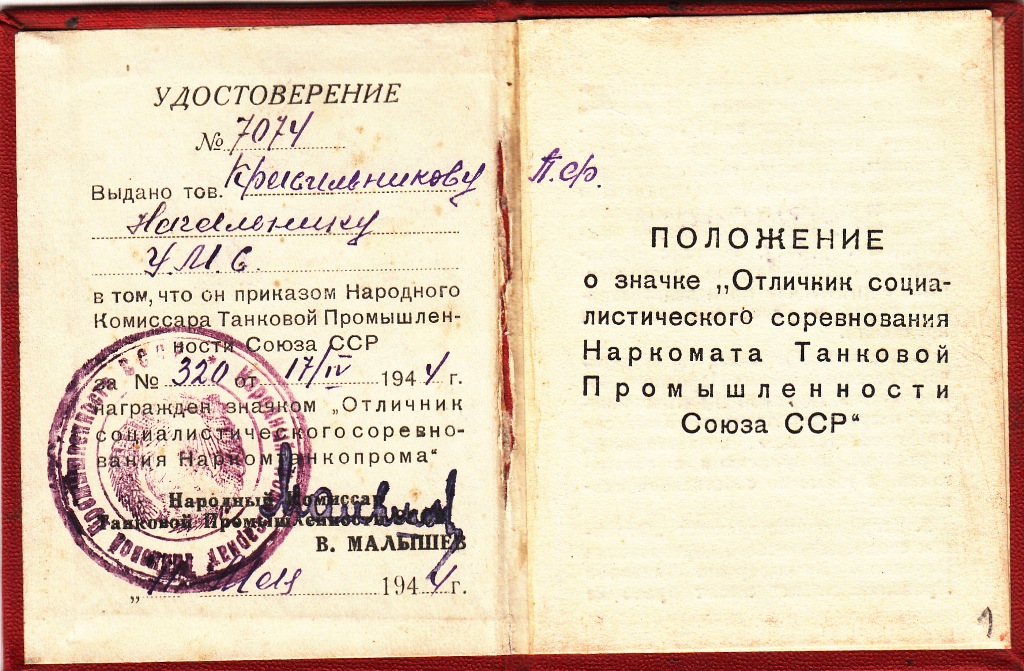 УДОСТОВЕРЕНИЕ
№ 7074
Выдано тов. Красильникову
Начальнику
У.М.С.
в том, что он приказом Народного
Комиссара Танковой Промышлен-
ности Союза ССР
за № 320 от 17/IV 1944 г.
награжден значком „Отличник
социалистического соревно-
вания Наркомтанкопрома“
Народный Комиссар
Танковой Промышленности
В. МАЛЫШЕВ
„ Мая 1944 г.
П.Ф.
ПОЛОЖЕНИЕ
о значке „Отличкик социа-
листического соревнования
Наркомата Танковой
Промышленности
Союза ССР“
1